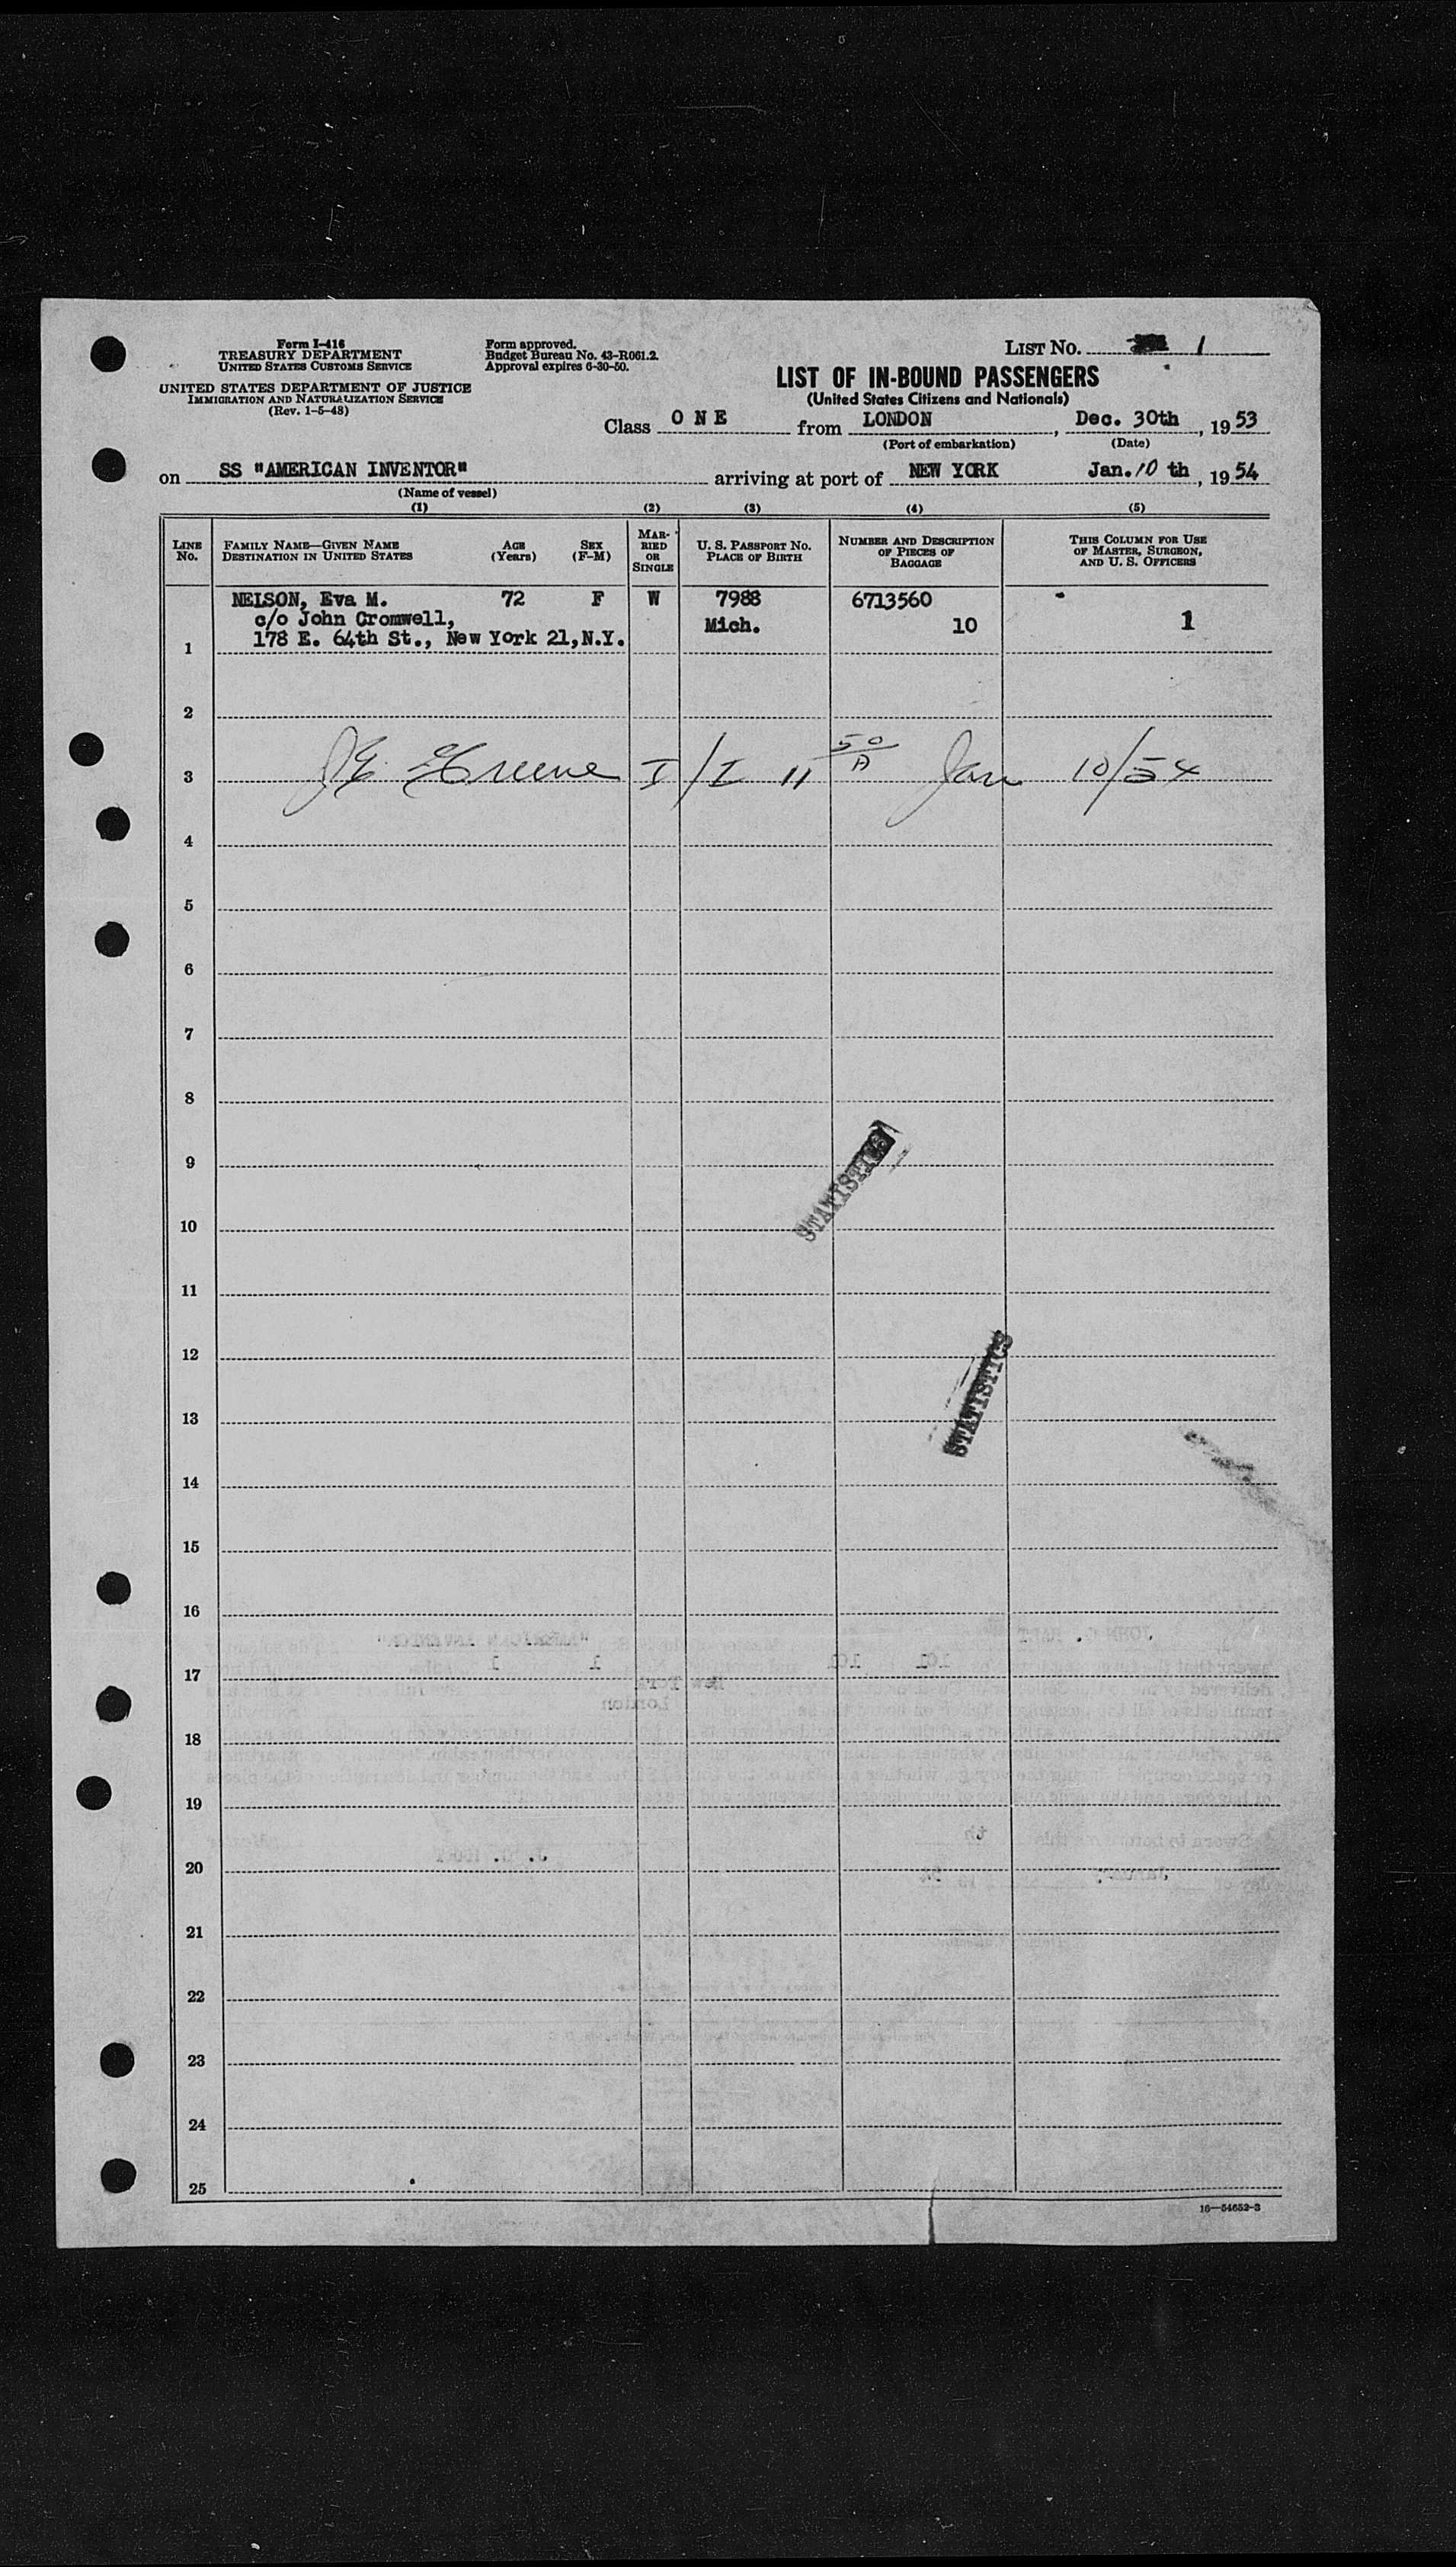 Form I-416
TREASURY DEPARTMENT
UNITED STATES CUSTOMS SERVICE
UNITED STATES DEPARTMENT OF JUSTICE
IMMIGRATION AND NATURALIZATION SERVICE
(Rev. 1-5-48)
Form approved.
Budget Bureau No. 43-R061.2.
Approval expires 6-30-50.
LIST NO. 1
LIST OF IN-BOUND PASSENGERS
(United States Citizens and Nationals)
Class ONE from LONDON, Dec. 30th, 1953
(Port of embarkation) (Date)
on SS "AMERICAN INVENTOR" arriving at port of NEW YORK Jan. 10 th, 1954
(Name of vessel)
(1) (2) (3) (4) (5)
LINE NO.
FAMILY NAME—GIVEN NAME
DESTINATION IN UNITED STATES
AGE (Years)
SEX (F-M)
MARRIED OR SINGLE
U. S. PASSPORT NO.
PLACE OF BIRTH
NUMBER AND DESCRIPTION OF PIECES OF BAGGAGE
THIS COLUMN FOR USE OF MASTER, SURGEON, AND U. S. OFFICERS
NELSON, Eva M. 72 F W 7988 6713560
c/o John Cromwell, Mich. 10 1
178 E. 64th St., New York 21, N.Y.
1
2
3 JE Greene I/I 11 50/A Jan 10/54
4
5
6
7
8
9
STATISTICS
10
11
12
STATISTICS
13
14
15
16
17
18
19
20
21
22
23
24
25
16—54652-3